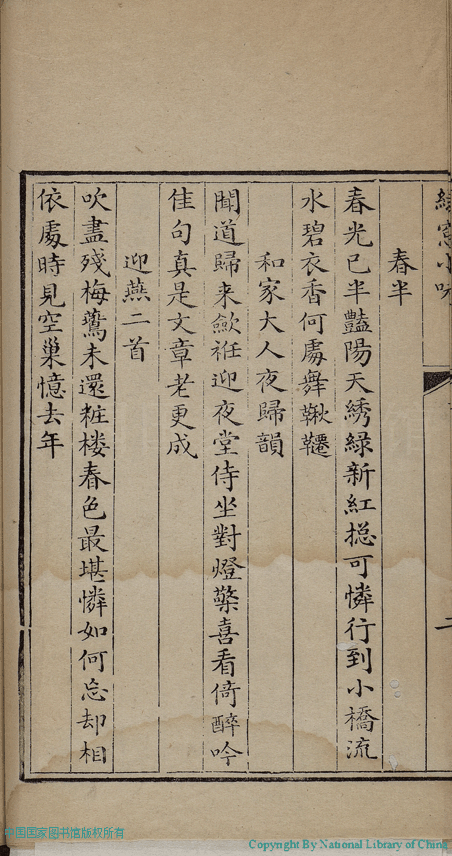 綠窓小咏
二
春半
春光已半豔陽天綉綠新紅揔可憐行到小橋流
水碧衣香何處舞鞦韆
和家大人夜歸韻
聞道歸来斂袵迎夜堂侍坐對燈檠喜看倚醉吟
佳句真是文章老更成
迎燕二首
吹盡殘梅鷰未還粧楼春色最堪憐如何忘却相
依處時見空巢憶去年
中国国家图书馆版权所有
Copyright By National Library of China